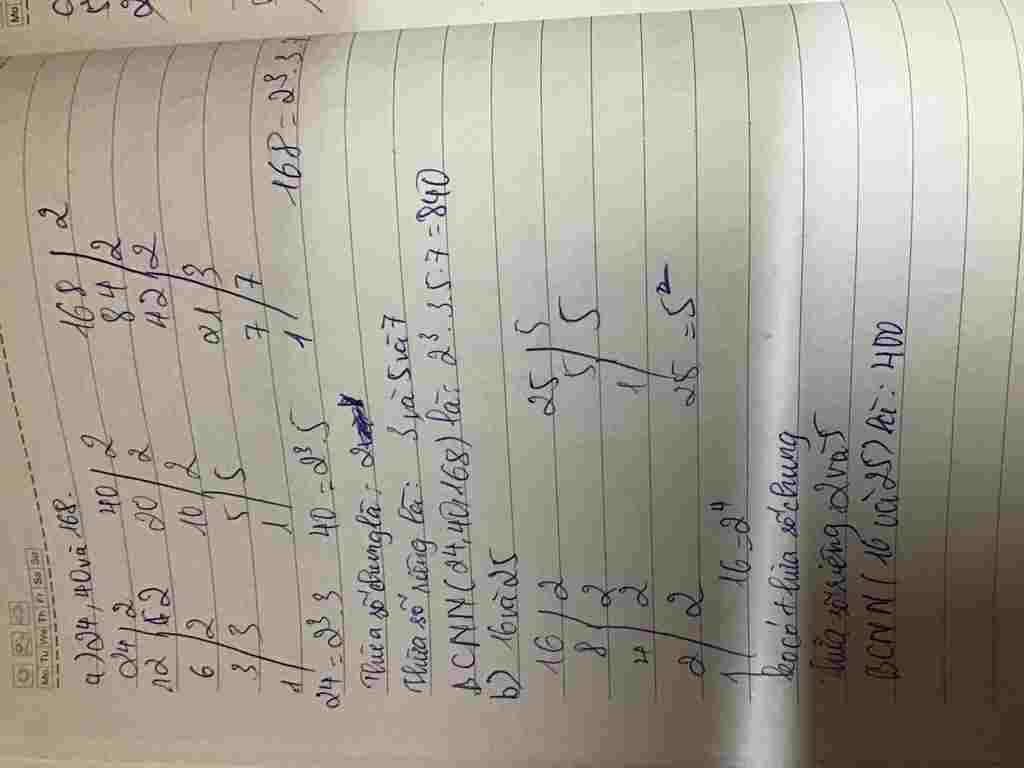 Mo Tu We Th Fr Sa Su
a) 24, 40 và 168.
24 2 40 2 168 2
12 2 20 2 84 2
6 2 10 2 42 2
3 3 5 5 21 3
1 1 7 7
1
24 = 2³.3 40 = 2³.5 168 = 2³.3.
Thừa số chung là: 2
Thừa số riêng là: 3 và 5 và 7
BCNN (24, 40, 168) là: 2³.3.5.7 = 840
b) 16 và 25
16 2 25 5
8 2 5 5
4 2 1
2 2 25 = 5²
1 16 = 2⁴
ko có thừa số chung
Thừa số riêng 2 và 5
BCNN (16 và 25) là: 400